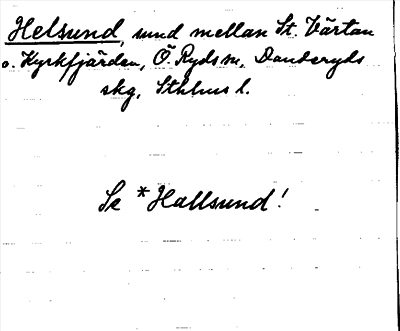 Helsund, sund mellan St. Värtan
o. Kyrkfjärden, Ö. Ryds sn, Danderyds
skg, Sthlms l.
Se *Hallsund!